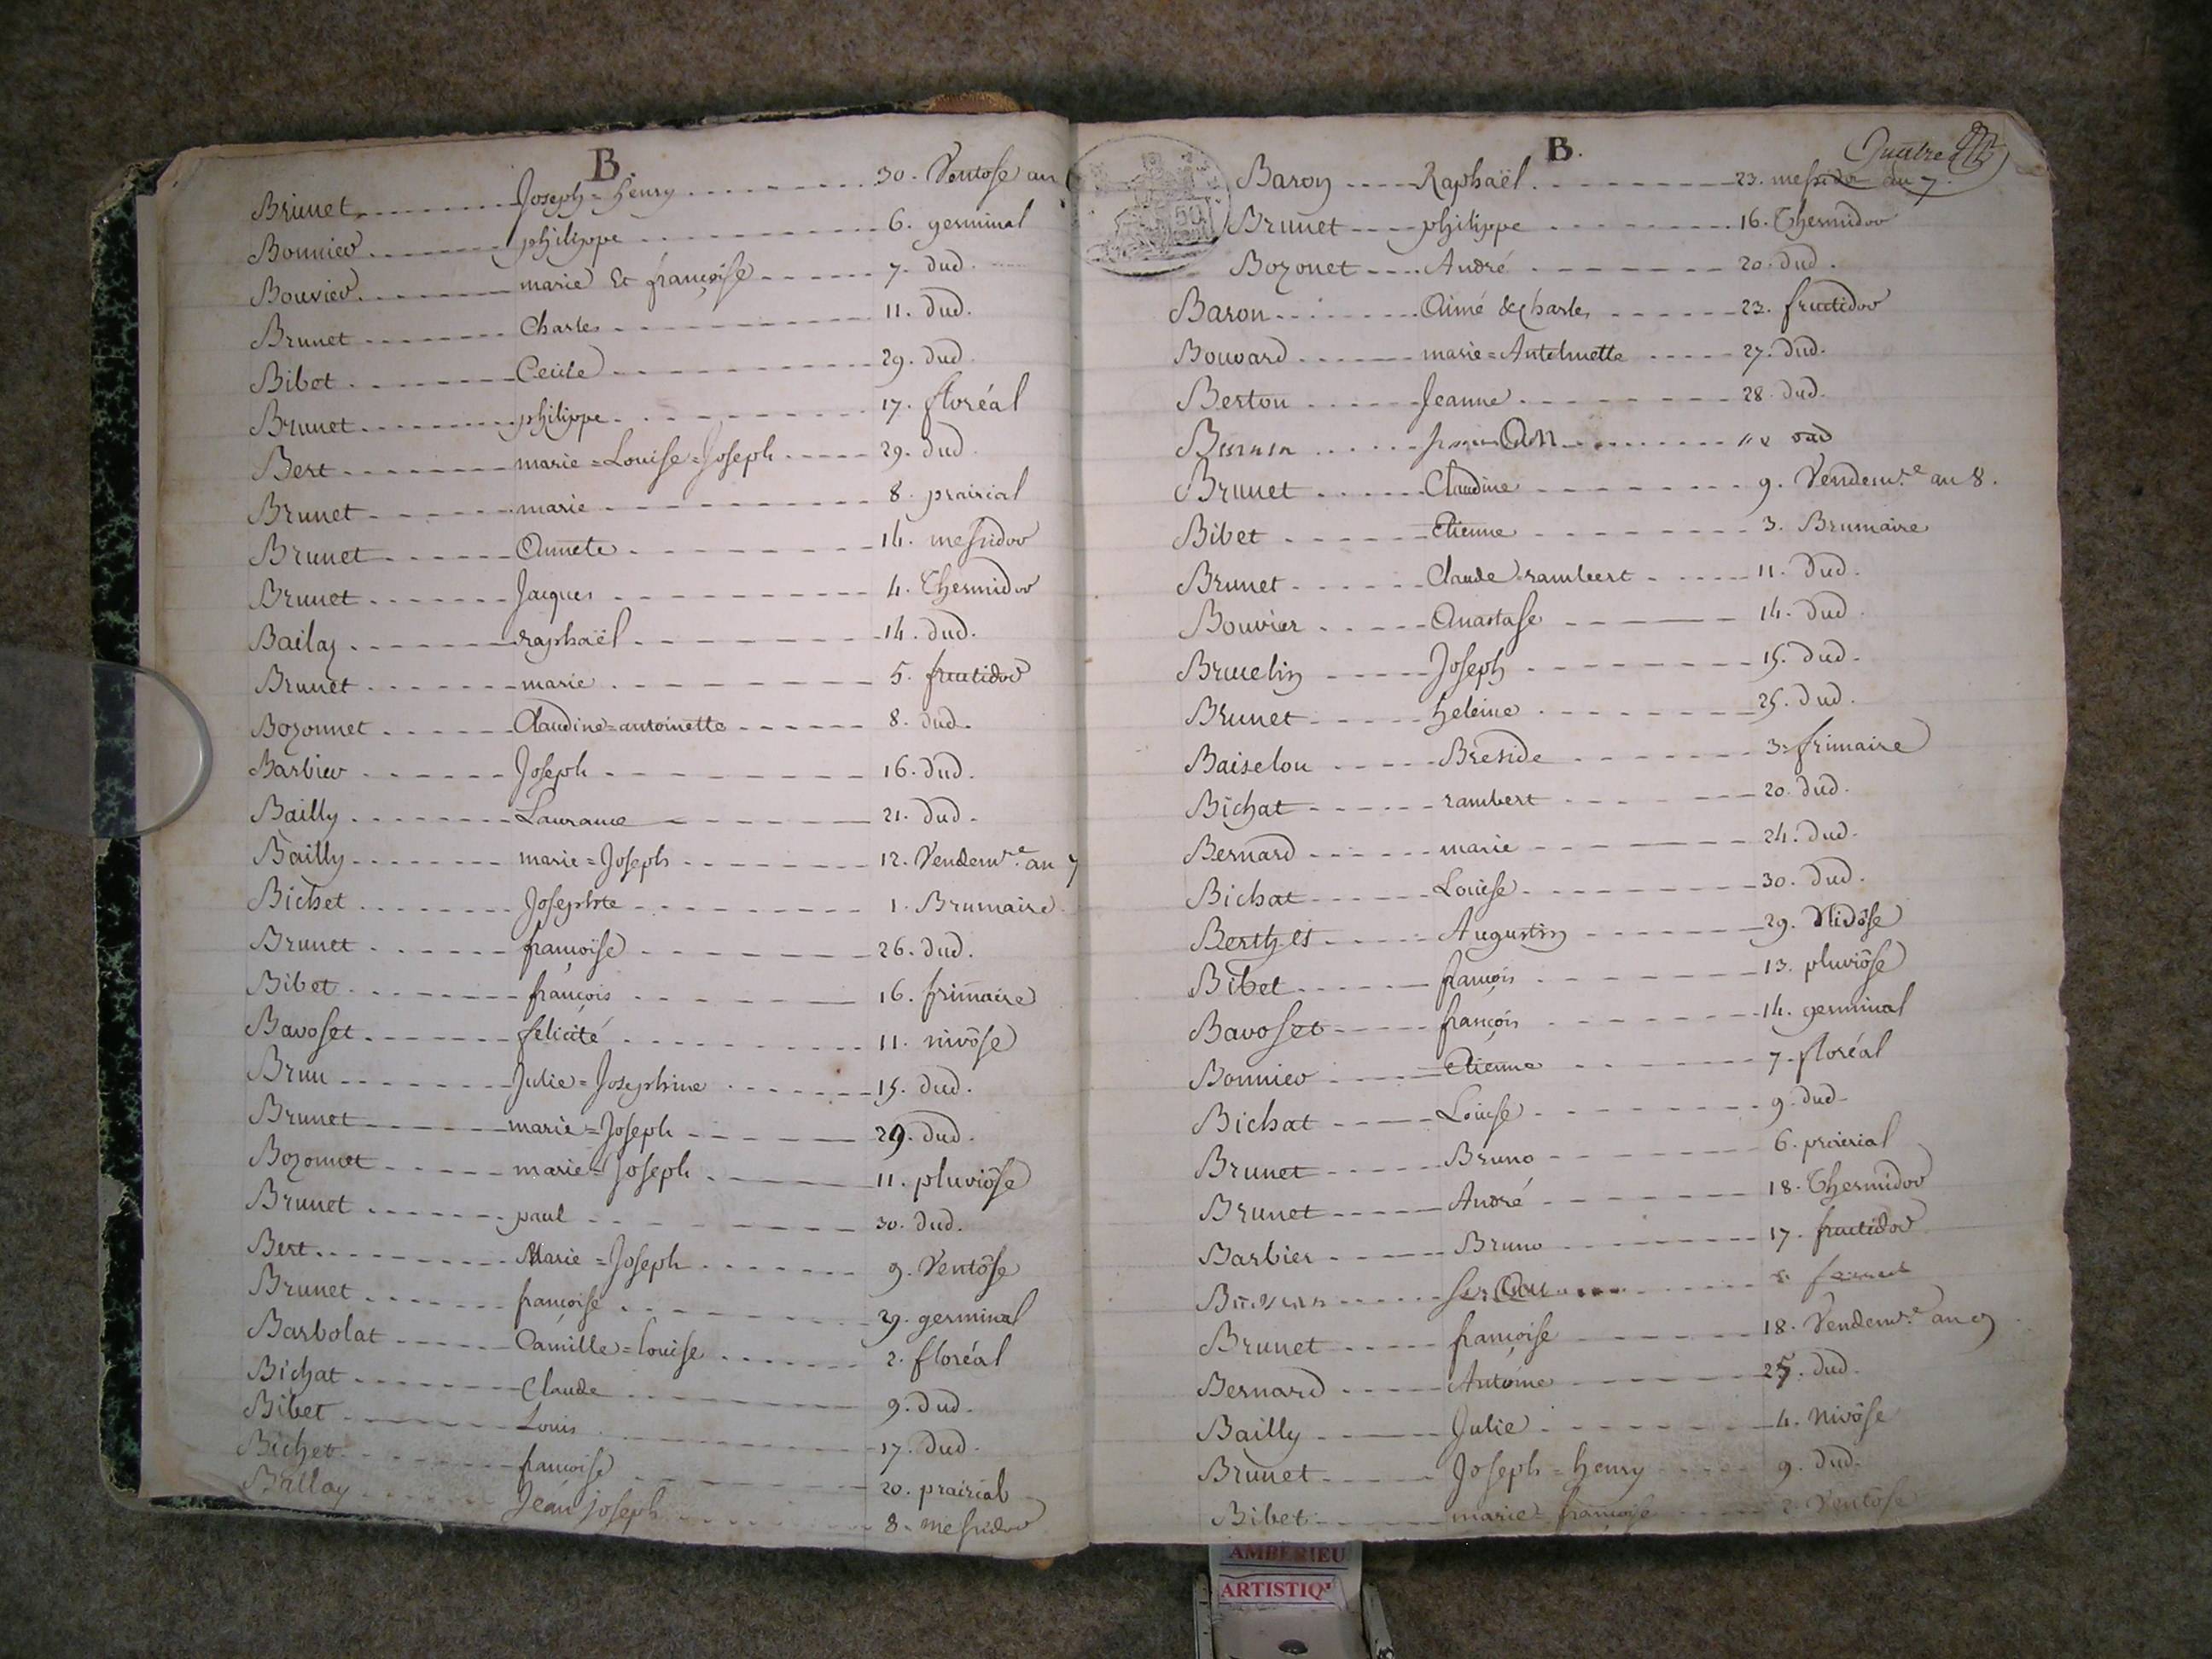 B.
Brunet Joseph=henry 30. Ventose an
Bonnier philippe 6. germinal
Bouvier marie Et françoise 7. dud.
Brunet Charles 11. dud.
Bibet Cecile 29. dud.
Brunet philippe 17. floréal
Bert marie=Louise=Joseph 29. dud.
Brunet marie 8. prairial
Brunet Annete 14. messidor
Brunet Jacques 4. Thermidor
Bailay raphaël 14. dud.
Brunet marie 5. fructidor
Bozonnet Claudine=antoinette 8. dud.
Barbier Joseph 16. dud.
Bailly Laurance 21. dud.
Bailly marie=Joseph 12. Vendemre. an 7
Bichet Josephte 1. Brumaire
Brunet françoise 26. dud.
Bibet françois 16. frimaire
Bavoset félicité 11. nivôse
Brun Julie=Josephine 15. dud.
Brunet marie=Joseph 29. dud.
Bozonnet marie=Joseph 11. pluviôse
Brunet paul 30. dud.
Bert Marie=Joseph 9. Ventôse
Brunet françoise 29. germinal
Barbolat Camille=louise 2. floréal
Bichat Claude 9. dud.
Bibet Louis 17. dud.
Bichet françoise 20. prairial
Ballay Jean joseph 8. messidor
B.
Quatre
Baron Raphaël 23. messidor an 7.
Brunet philippe 16. Thermidor
Bozonet André 20. dud.
Baron Aimé & Charles 23. fructidor
Bouvard marie=Anthelmette 27. dud.
Berton Jeanne 28. dud.
Brunet Claudine 9. Vendemre. an 8.
Bibet Etienne 3. Brumaire
Brunet Claude=rambert 11. dud.
Bouvier Anastase 14. dud.
Bruelin Joseph 15. dud.
Brunet heleine 25. dud.
Baiselon Breside 3. frimaire
Bichat rambert 20. dud.
Bernard marie 24. dud.
Bichat Louise 30. dud.
Berthet Augustin 29. Nivôse
Bibet françois 13. pluviôse
Bavoset françois 14. germinal
Bonnier Etienne 7. floréal
Bichat Louise 9. dud.
Brunet Bruno 6. prairial
Brunet André 18. Thermidor
Barbier Bruno 17. fructidor
Brunet françoise 18. Vendemre. an 9
Bernard Antoine 25. dud.
Bailly Julie 4. nivôse
Brunet Joseph=henry 9. dud.
Bibet marie=françoise 2. Ventose
AMBERIEU
ARTISTIQ